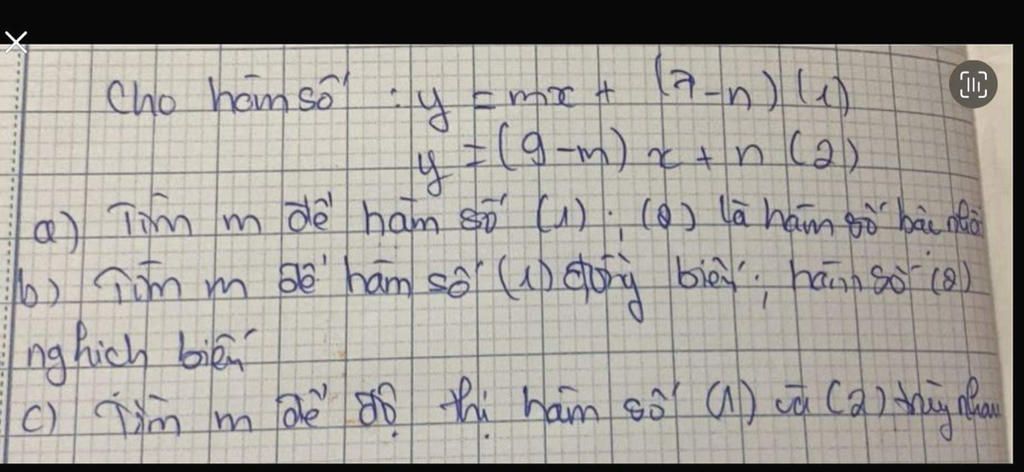 Cho hàm số : y = mx + (7-n) (1)
y = (9-m) x + n (2)
a) Tìm m để hàm số (1); (2) là hàm số bậc nhất
b) Tìm m để hàm số (1) đồng biến; hàm số (2)
nghịch biến
c) Tìm m để đồ thị hàm số (1) và (2) trùng nhau